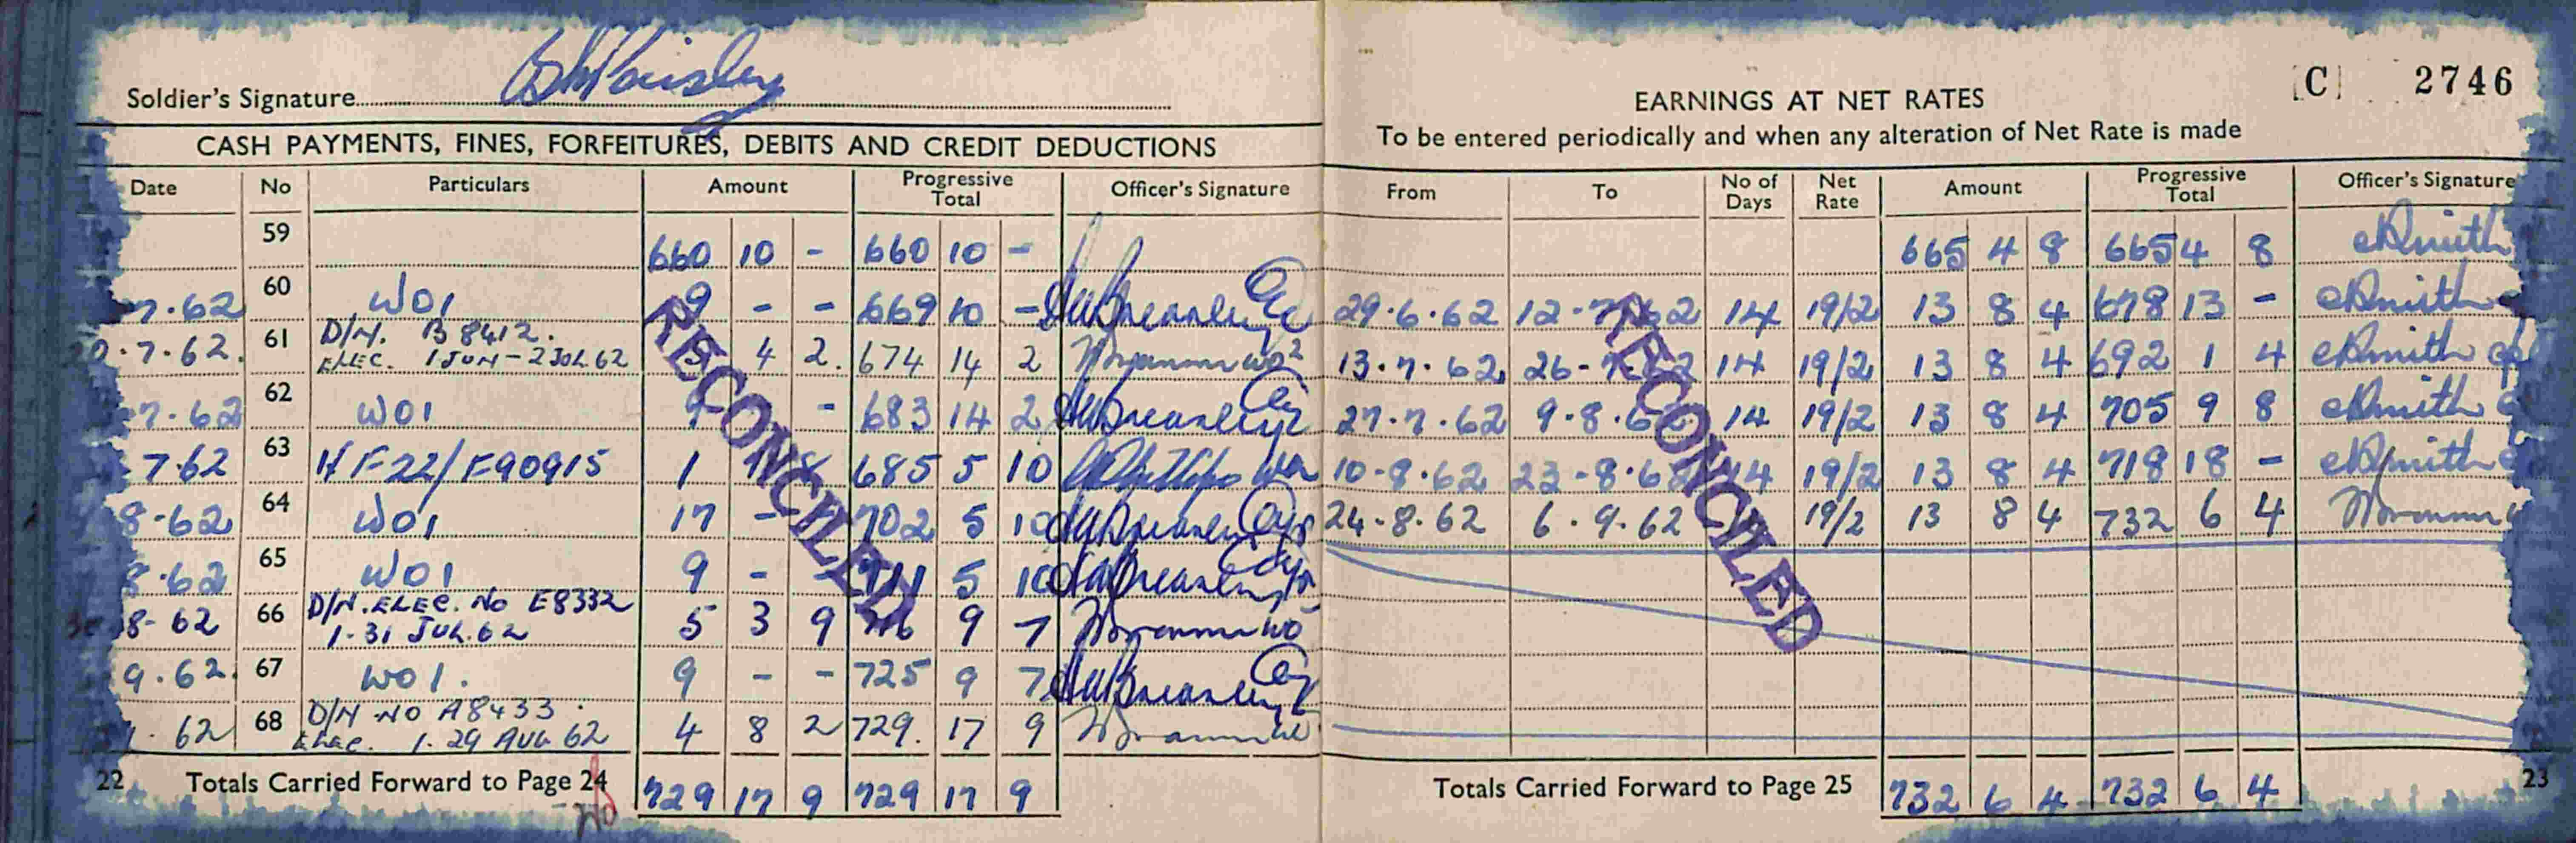 Soldier's Signature
CASH PAYMENTS, FINES, FORFEITURES, DEBITS AND CREDIT DEDUCTIONS
Date No Particulars Amount Progressive Total Officer's Signature
59 660 10 - 660 10 -
7.62 60 W01 9 - - 669 10 -
.7.62. 61 D/N. B 8412. ELEC. 1 JUN - 2 JUL 62 5 4 2. 674 14 2
7.62 62 W01 9 - 683 14 2
7.62 63 HF22/F90915 1 685 5 10
8-62 64 W01 17 - 702 5 10
8.62 65 W01 9 - - 711 5 10
8-62 66 D/N. ELEC. No E8332 1-31 JUL. 62 5 3 9 9 7
9.62. 67 W01. 9 - - 725 9 7
62 68 D/N NO A8433. Elec. 1. 29 AUG 62 4 8 2 729. 17 9
22 Totals Carried Forward to Page 24 729 17 9 729 17 9
RECONCILED
[C] 2746
EARNINGS AT NET RATES
To be entered periodically and when any alteration of Net Rate is made
From To No of Days Net Rate Amount Progressive Total Officer's Signature
665 4 8 665 4 8
29.6.62 12-7-62 14 19/2 13 8 4 678 13 -
13.7.62 26-7-62 14 19/2 13 8 4 692 1 4
27.7.62 9.8.62 14 19/2 13 8 4 705 9 8
10-8.62 23-8.62 14 19/2 13 8 4 718 18 -
24.8.62 6.9.62 19/2 13 8 4 732 6 4
Totals Carried Forward to Page 25 732 6 4 732 6 4
23
RECONCILED